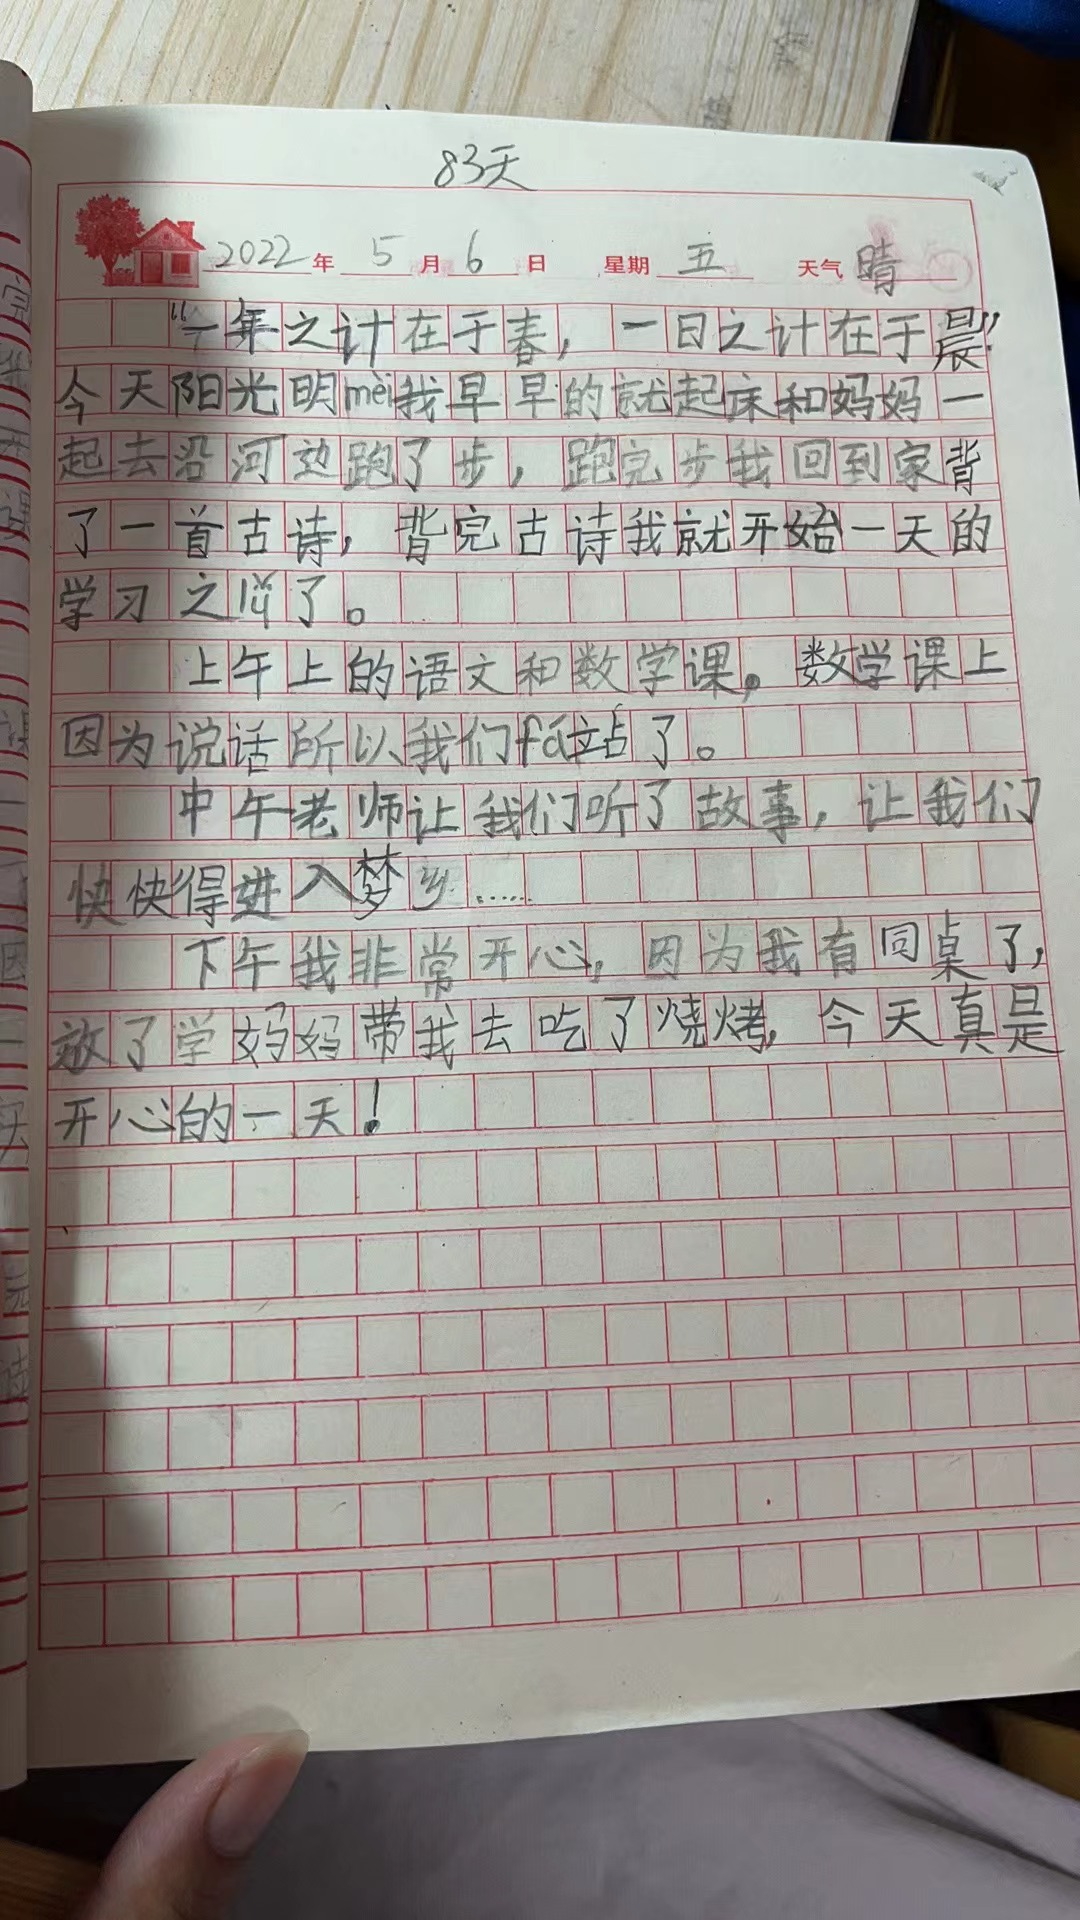 83天
2022年 5月6日 星期 五 天气 晴
“一年之计在于春，一日之计在于晨”
今天阳光明mèi我早早的就起床和妈妈一
起去沿河边跑了步，跑完步我回到家背
了一首古诗，背完古诗我就开始一天的
学习之lǚ了。
上午上的语文和数学课。数学课上
因为说话所以我们fá站了。
中午老师让我们听了故事，让我们
快快得进入梦乡……
下午我非常开心，因为我有同桌了，
放了学妈妈带我去吃了烧烤，今天真是
开心的一天！